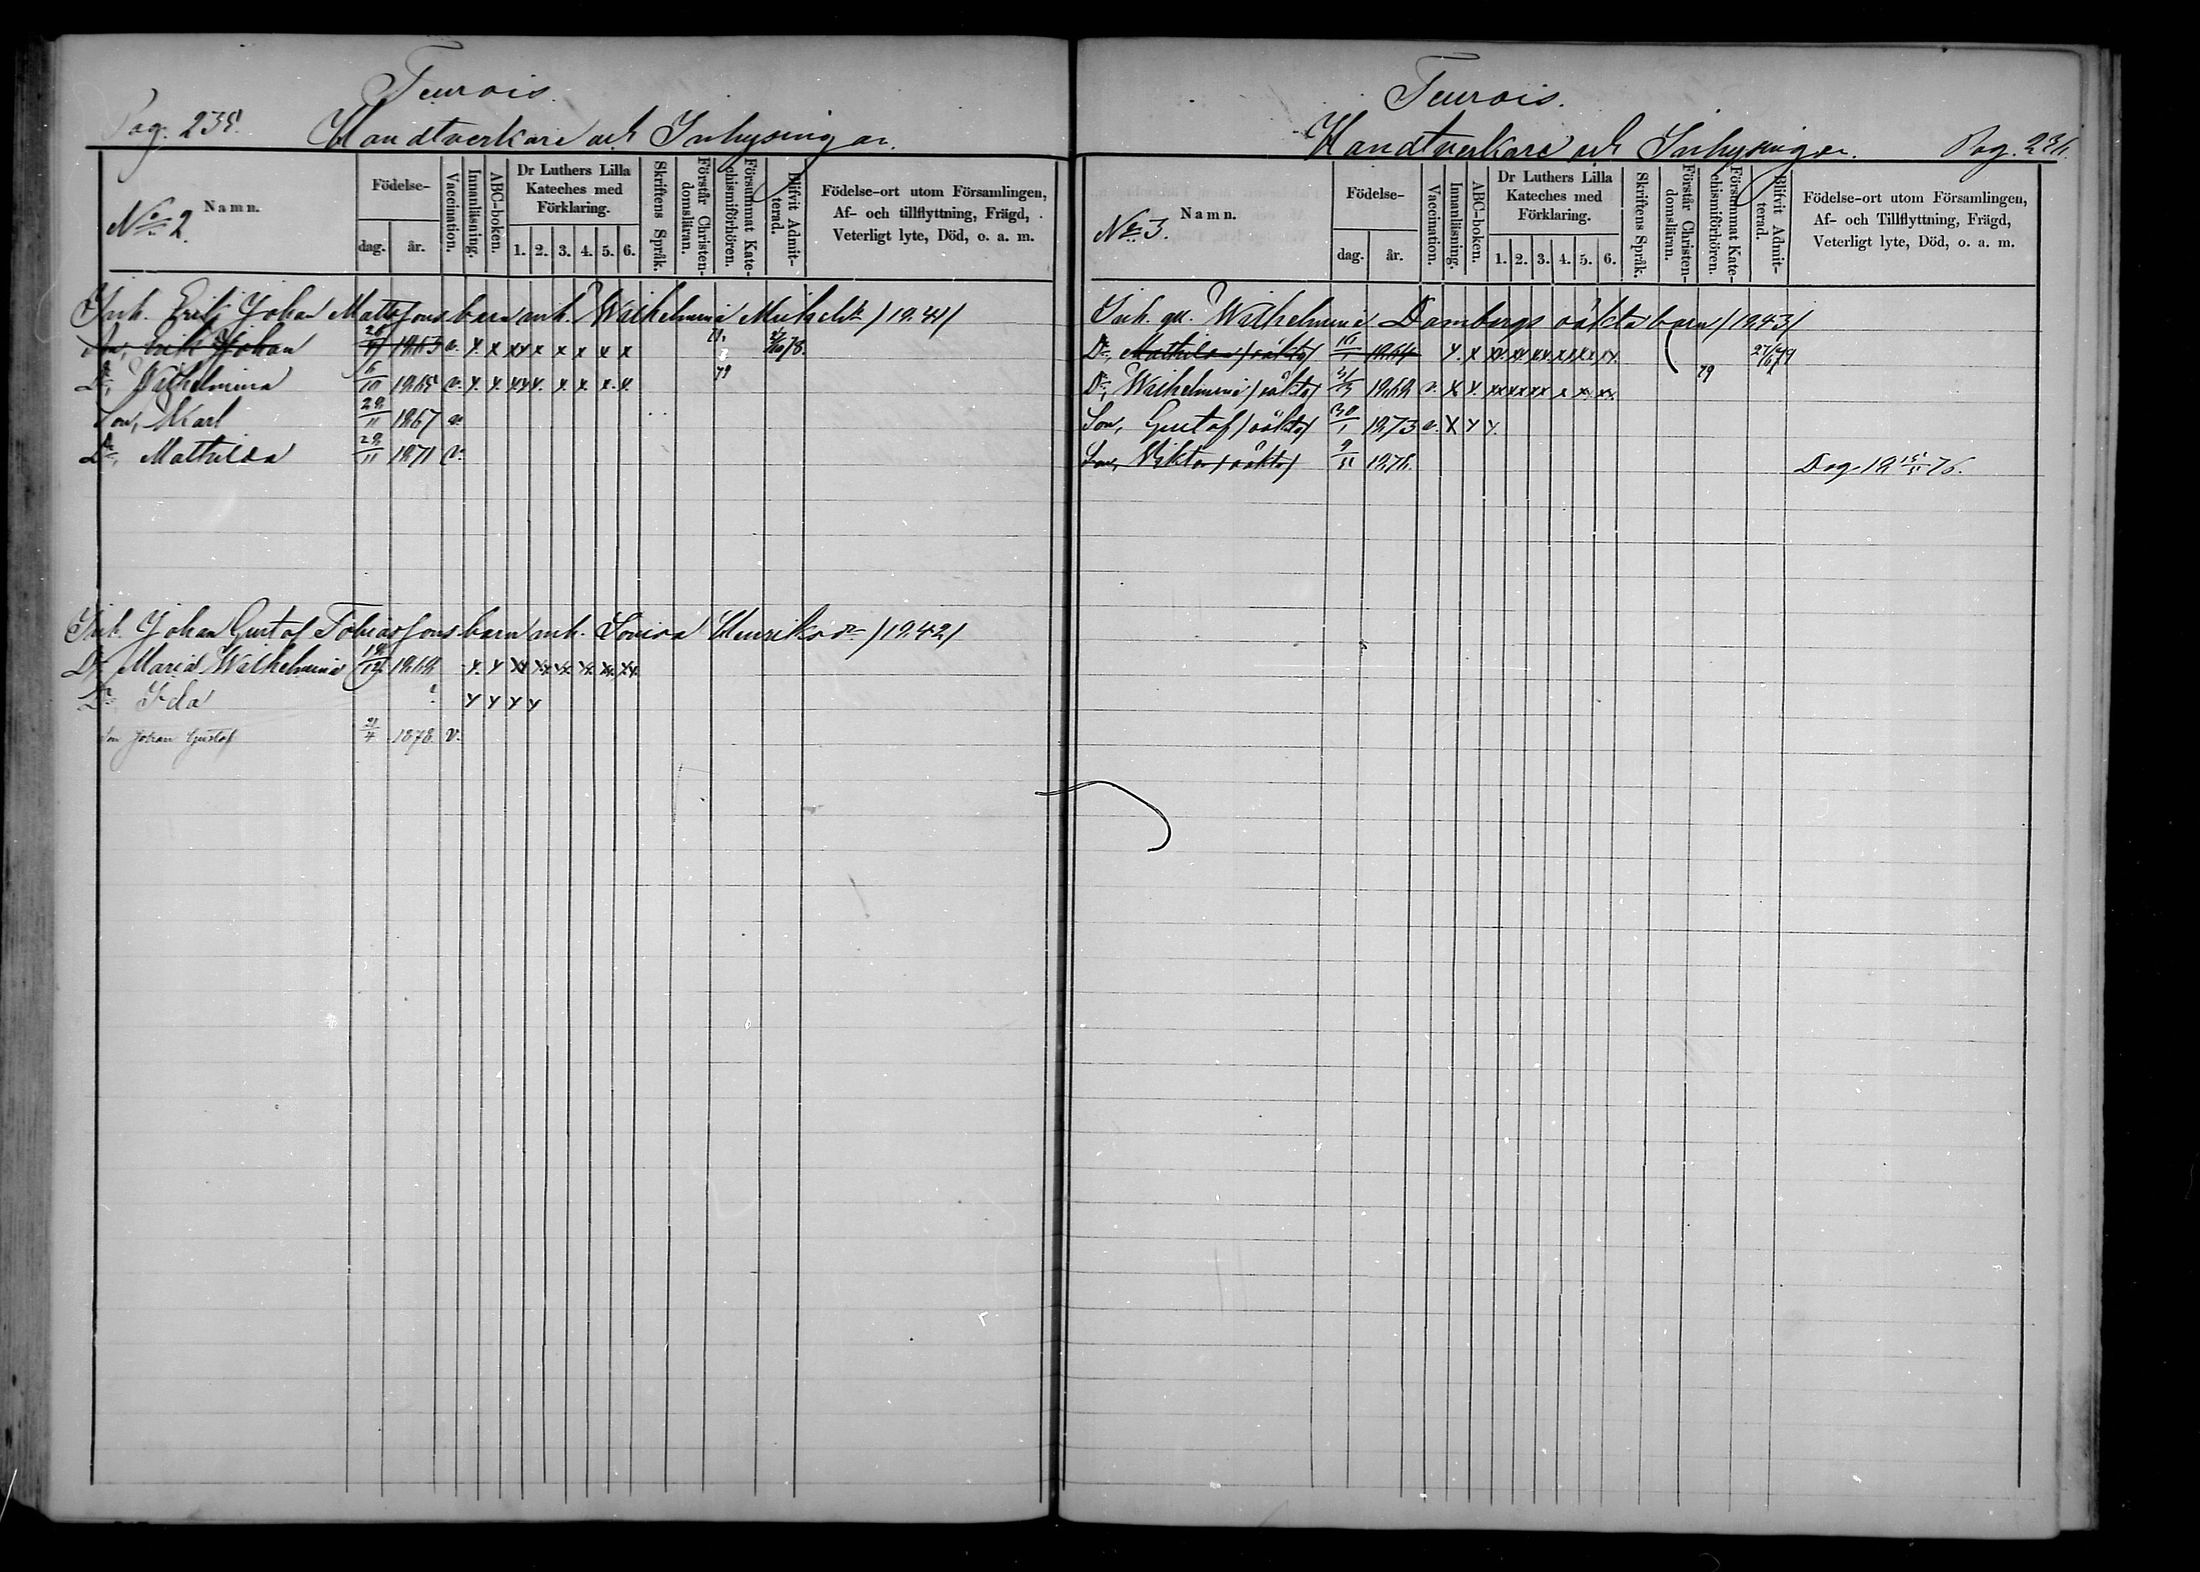 Teurois.
Pag. 235.
Handtverkare och Inhysingar.
No 2.
Namn.
Födelse-
dag. år.
Vaccination.
Innanläsning.
ABC-boken.
Dr Luthers Lilla Kateches med Förklaring.
1. 2. 3. 4. 5. 6.
Skriftens Språk.
Förstår Christendomsläran.
Försummat Katechismiförhören.
Blifvit Admitterad.
Födelse-ort utom Församlingen, Af- och tillflyttning, Frägd, Veterligt lyte, Död, o. a. m.
Inh. Erik Johan Mattssons barn m.h. Wilhelmina Mickelsdr /1841/
Son, Erik Johan 1863 v. x x xx x x x x x 78.
Dr, Wilhelmina 6/10 1865 v. x. x xx x. x x x. x. 79
Son, Karl 28/11 1867 v.
Dr, Mathilda 28/11 1871 v.
Inh. Johan Gustaf Tobiassons barn m.h. Lovisa Henriksdr /1842/
Dr Maria Wilhelmina 18/12 1868 x. x xx xx xx xx xx xx
Dr Ida ? x x x x
Son Johan Gustaf 21/4 1878 v.
Teurois.
Handtverkare och Inhysingar.
Pag. 236.
No 3.
Namn.
Födelse-
dag. år.
Vaccination.
Innanläsning.
ABC-boken.
Dr Luthers Lilla Kateches med Förklaring.
1. 2. 3. 4. 5. 6.
Skriftens Språk.
Förstår Christendomsläran.
Försummat Katechismiförhören.
Blifvit Admitterad.
Födelse-ort utom Församlingen, Af- och Tillflyttning, Frägd, Veterligt lyte, Död, o. a. m.
Inh. qu. Wilhelmina Dambergs oäkta barn /1843/
Dr, Mathilda /oäkta/ 1864 x. x xx xx xx xx xx xx 79
Dr, Wilhelmina /oäkta/ 1868 v. x x. xx xx xx x xx xx
Son, Gustaf /oäkta/ 30/1 1873 v. x x x.
Son, Viktor /oäkta/ 2/11 1876. Dog 18 15/11 76.